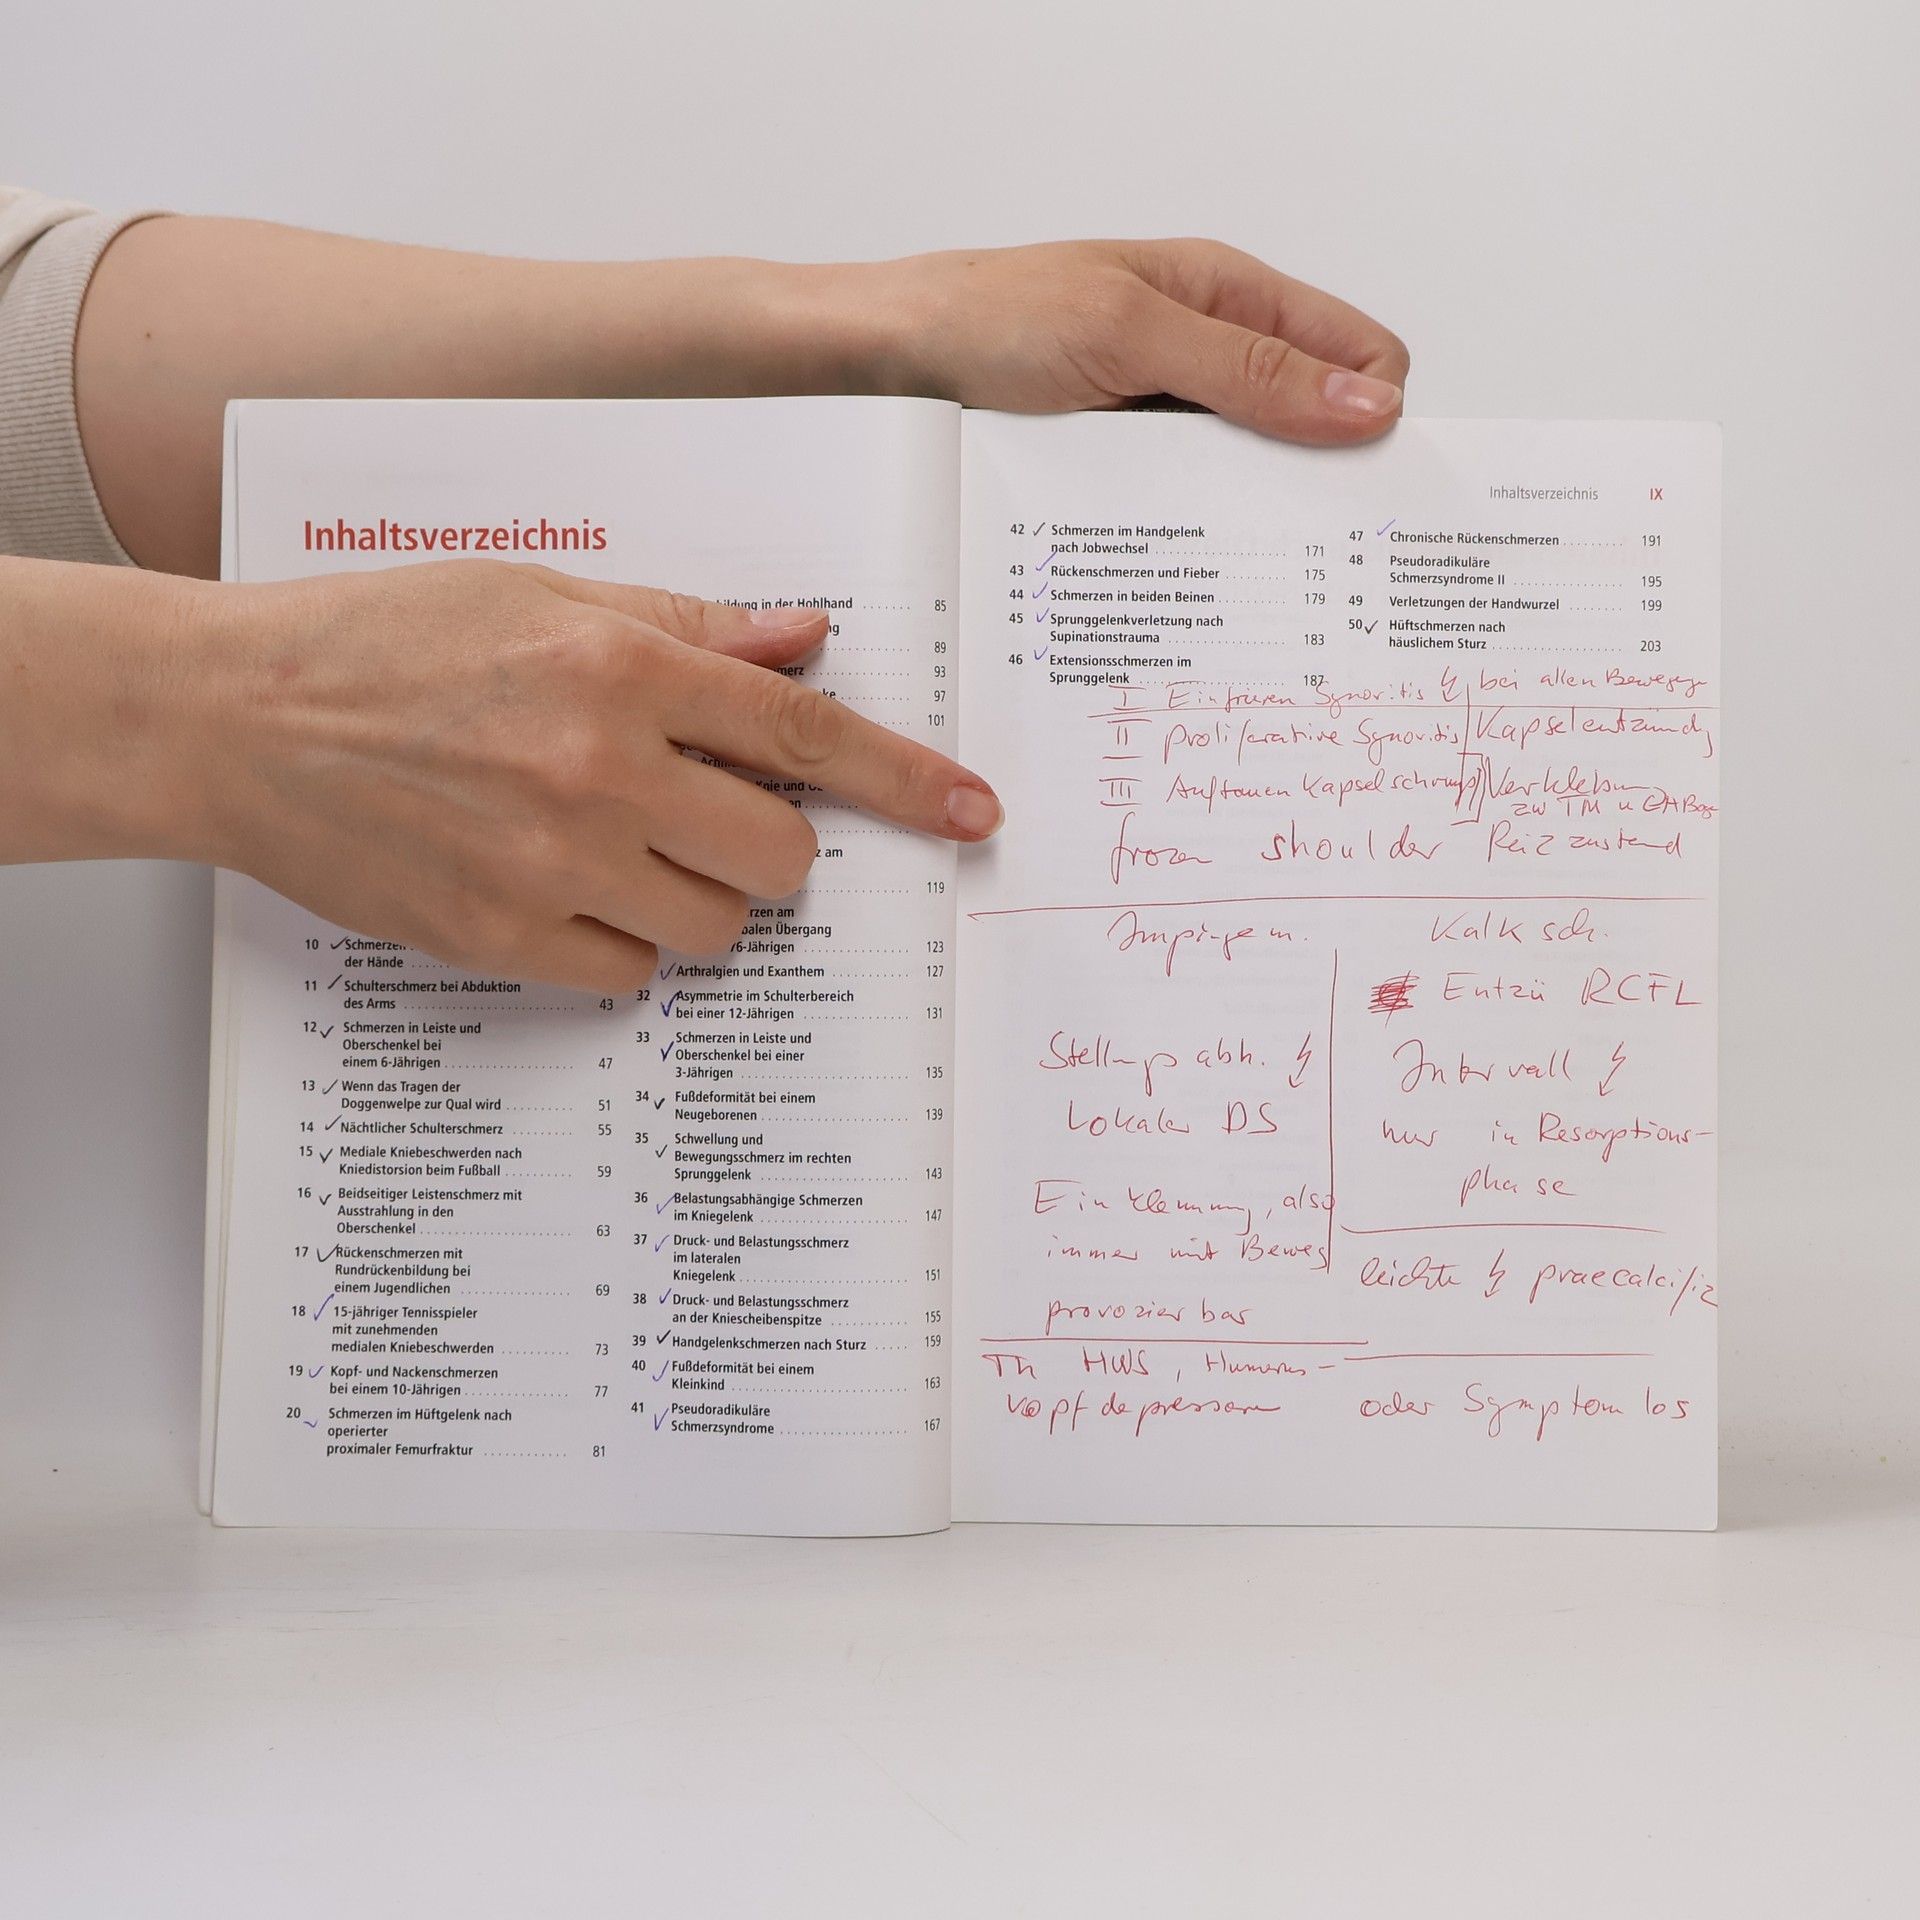 Inhaltsverzeichnis
10 Schmerzen
der Hände
11 Schulterschmerz bei Abduktion
des Arms 43
12 Schmerzen in Leiste und
Oberschenkel bei
einem 6-Jährigen 47
13 Wenn das Tragen der
Doggenwelpe zur Qual wird 51
14 Nächtlicher Schulterschmerz 55
15 Mediale Kniebeschwerden nach
Kniedistorsion beim Fußball 59
16 Beidseitiger Leistenschmerz mit
Ausstrahlung in den
Oberschenkel 63
17 Rückenschmerzen mit
Rundrückenbildung bei
einem Jugendlichen 69
18 15-jähriger Tennisspieler
mit zunehmenden
medialen Kniebeschwerden 73
19 Kopf- und Nackenschmerzen
bei einem 10-Jährigen 77
20 Schmerzen im Hüftgelenk nach
operierter
proximaler Femurfraktur 81
bildung in der Hohlhand 85
89
93
97
101
Knie und
am
119
rzen am
balen Übergang
76-Jährigen 123
Arthralgien und Exanthem 127
32 Asymmetrie im Schulterbereich
bei einer 12-Jährigen 131
33 Schmerzen in Leiste und
Oberschenkel bei einer
3-Jährigen 135
34 Fußdeformität bei einem
Neugeborenen 139
35 Schwellung und
Bewegungsschmerz im rechten
Sprunggelenk 143
36 Belastungsabhängige Schmerzen
im Kniegelenk 147
37 Druck- und Belastungsschmerz
im lateralen
Kniegelenk 151
38 Druck- und Belastungsschmerz
an der Kniescheibenspitze 155
39 Handgelenkschmerzen nach Sturz 159
40 Fußdeformität bei einem
Kleinkind 163
41 Pseudoradikuläre
Schmerzsyndrome 167
Inhaltsverzeichnis IX
42 Schmerzen im Handgelenk
nach Jobwechsel 171
43 Rückenschmerzen und Fieber 175
44 Schmerzen in beiden Beinen 179
45 Sprunggelenkverletzung nach
Supinationstrauma 183
46 Extensionsschmerzen im
Sprunggelenk 187
47 Chronische Rückenschmerzen 191
48 Pseudoradikuläre
Schmerzsyndrome II 195
49 Verletzungen der Handwurzel 199
50 Hüftschmerzen nach
häuslichem Sturz 203
I Einfrieren Synovitis bei allen
II proliferative Synovitis Kapselentzündg
III Auftauen Kapselschrumpf
zw TM u
frozen shoulder Reizzustand
Impingem.
Stellungsabh.
Lokaler DS
Einklemmung, also
immer mit Beweg
provozierbar
Th HWS, Humerus-
kopfdepressoren
Kalksch.
Entzü RCFL
Intervall
nur in Resorptions-
phase
leichte praecalcifiz
oder Symptomlos